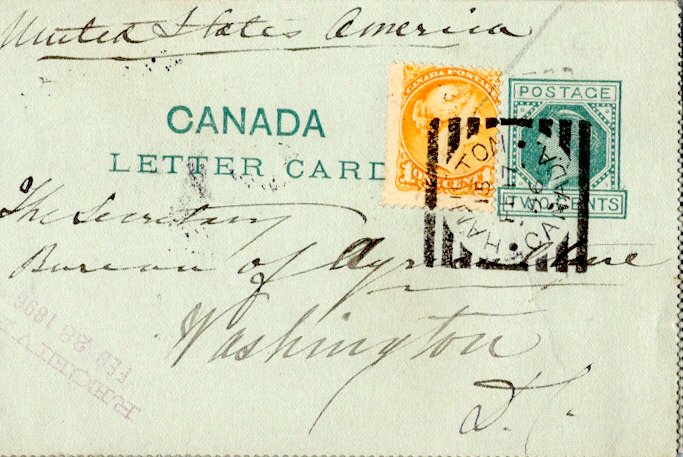 United States America
CANADA POSTAGE
POSTAGE
CANADA
LETTER CARD
TWO CENTS
HAMILTON
CANADA
The Secretary
Bureau of Agriculture
Washington
D.C.
RECEIVED
FEB 28 1896